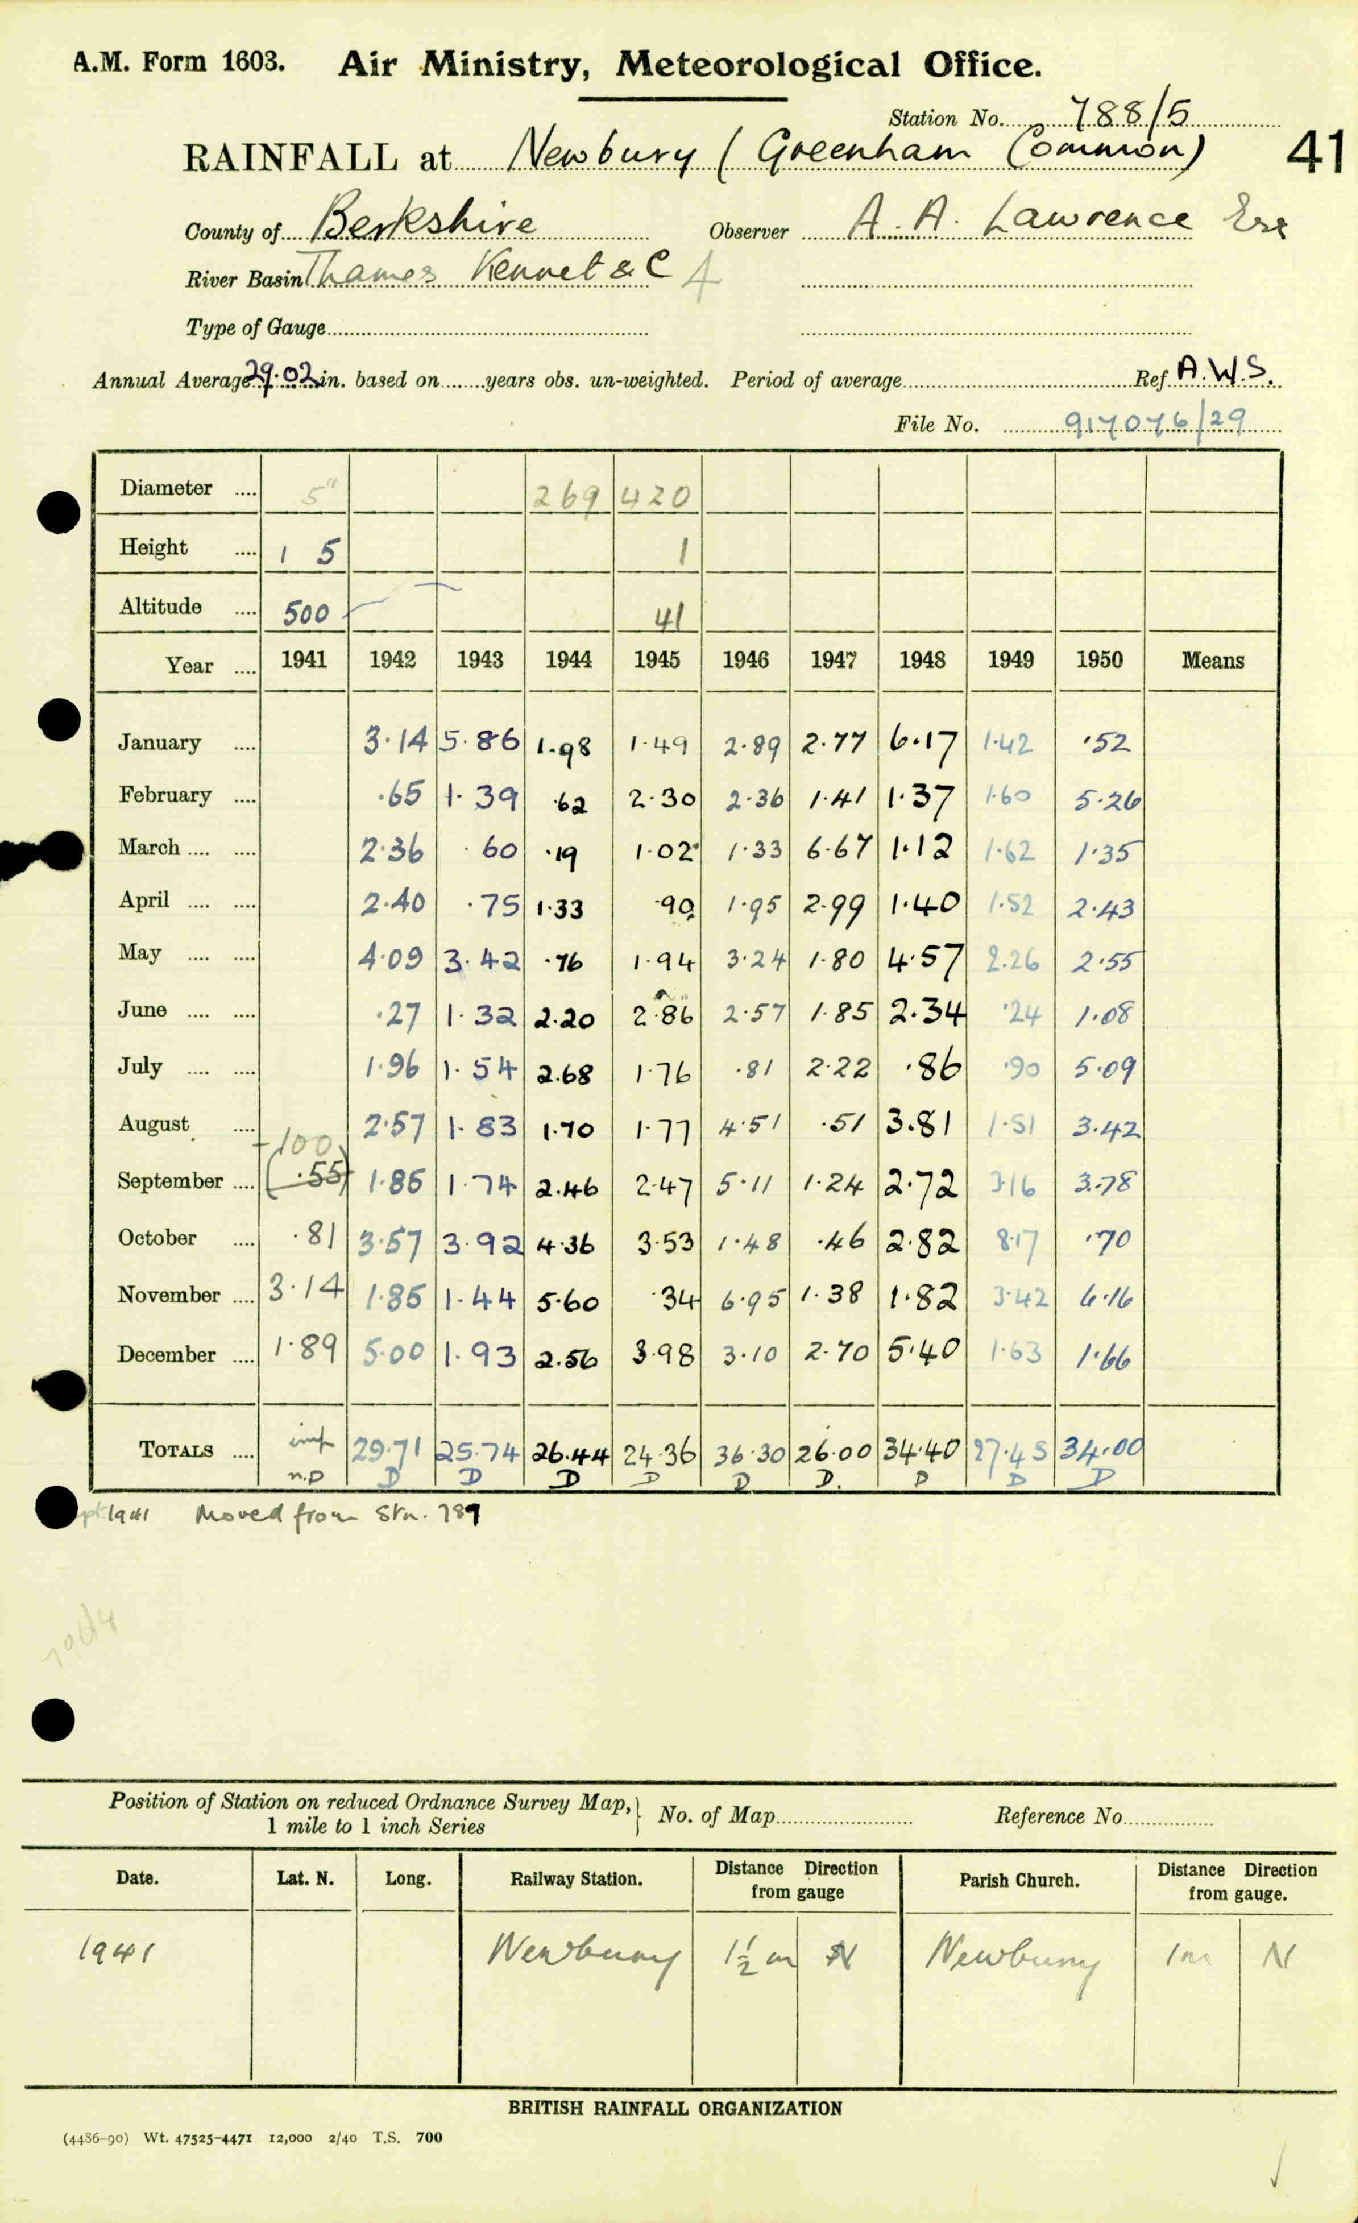 A.M. Form 1603. Air Ministry, Meteorological Office.
Station No. 788/5
RAINFALL at Newbury (Greenham Common) 41
County of Berkshire Observer A. A. Lawrence Esq
River Basin Thames Kennet & C 4
Type of Gauge
Annual Average 29.02 in. based on years obs. un-weighted. Period of average Ref A.W.S.
File No. 917076/29
Diameter 5" 269 420
Height 1 5 1
Altitude 500 41
Year 1941 1942 1943 1944 1945 1946 1947 1948 1949 1950 Means
January 3.14 5.86 1.98 1.49 2.89 2.77 6.17 1.42 .52
February .65 1.39 .62 2.30 2.36 1.41 1.37 1.60 5.26
March 2.36 .60 .19 1.02 1.33 6.67 1.12 1.62 1.35
April 2.40 .75 1.33 .90 1.95 2.99 1.40 1.52 2.43
May 4.09 3.42 .76 1.94 3.24 1.80 4.57 2.26 2.55
June .27 1.32 2.20 2.86 2.57 1.85 2.34 .24 1.08
July 1.96 1.54 2.68 1.76 .81 2.22 .86 .90 5.09
August 2.57 1.83 1.70 1.77 4.51 .51 3.81 1.51 3.42
100
September (.55) 1.85 1.74 2.46 2.47 5.11 1.24 2.72 3.16 3.78
October .81 3.57 3.92 4.36 3.53 1.48 .46 2.82 8.17 .70
November 3.14 1.85 1.44 5.60 .34 6.95 1.38 1.82 3.42 6.16
December 1.89 5.00 1.93 2.56 3.98 3.10 2.70 5.40 1.63 1.66
TOTALS imp 29.71 25.74 26.44 24.36 36.30 26.00 34.40 27.45 34.00
n.D D D D D D D. D D D
1941 Moved from Stn. 789
Position of Station on reduced Ordnance Survey Map, No. of Map Reference No.
1 mile to 1 inch Series
Date. Lat. N. Long. Railway Station. Distance Direction from gauge Parish Church. Distance Direction from gauge.
1941 Newbury 1½ m N Newbury 1m N
BRITISH RAINFALL ORGANIZATION
(4486-90) Wt. 47525-4471 12,000 2/40 T.S. 700